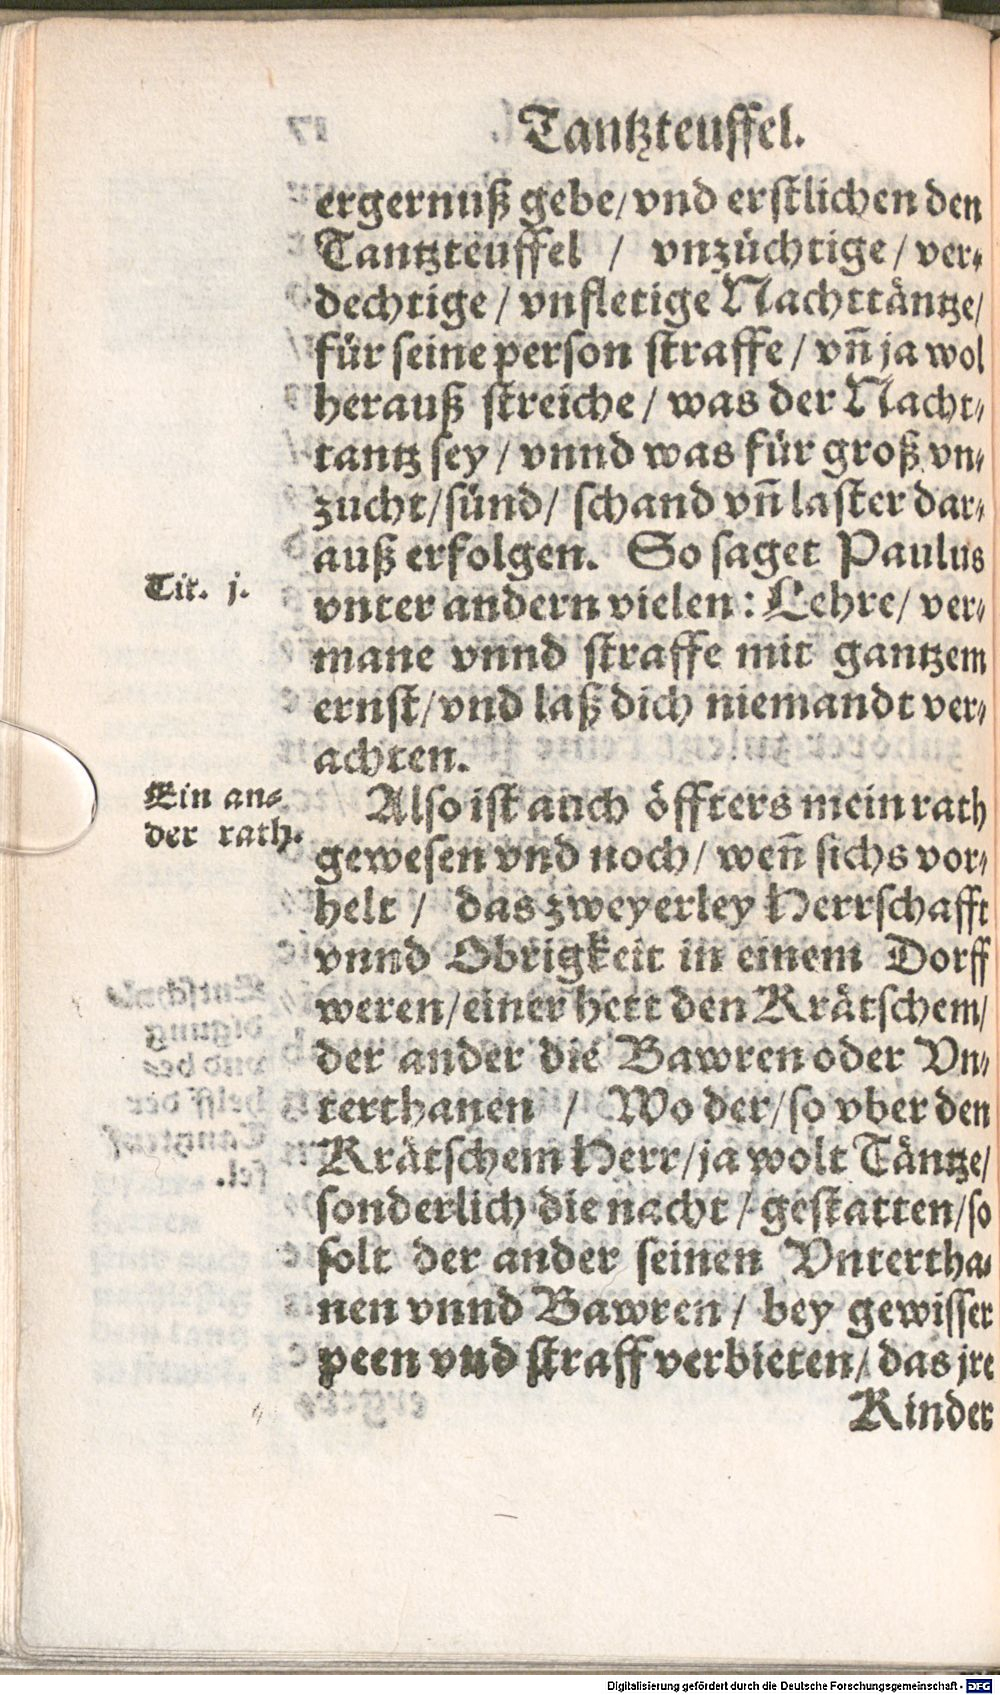 Tantzteuffel.
ergernuß gebe/ vnd erstlichen den
Tantzteuffel / vnzüchtige/ ver-
dechtige/ vnfletige Nachttäntze/
für seine person straffe/ vñ ja wol
herauß streiche/ was der Nacht-
tantz sey/ vnnd was für groß vn-
zucht/ sünd/ schand vñ laster dar-
auß erfolgen. So saget Paulus
Tit. j.
vnter andern vielen: Lehre/ ver-
mane vnnd straffe mit gantzem
ernst/ vnd laß dich niemandt ver-
achten.
Ein an-
der rath.
Also ist auch öffters mein rath
gewesen vnd noch/ weñ sichs vor-
helt / das zweyerley Herrschafft
vnnd Obrigkeit in einem Dorff
weren/ einer hett den Krätschem/
der ander die Bawren oder Vn-
terthanen / Wo der/ so vber den
Krätschem Herr/ ja wolt Täntze/
sonderlich die nacht / gestatten/ so
solt der ander seinen Vntertha-
nen vnnd Bawren / bey gewisser
peen vnd straff verbieten/ das jre
Kinder
Digitalisierung gefördert durch die Deutsche Forschungsgemeinschaft - DFG